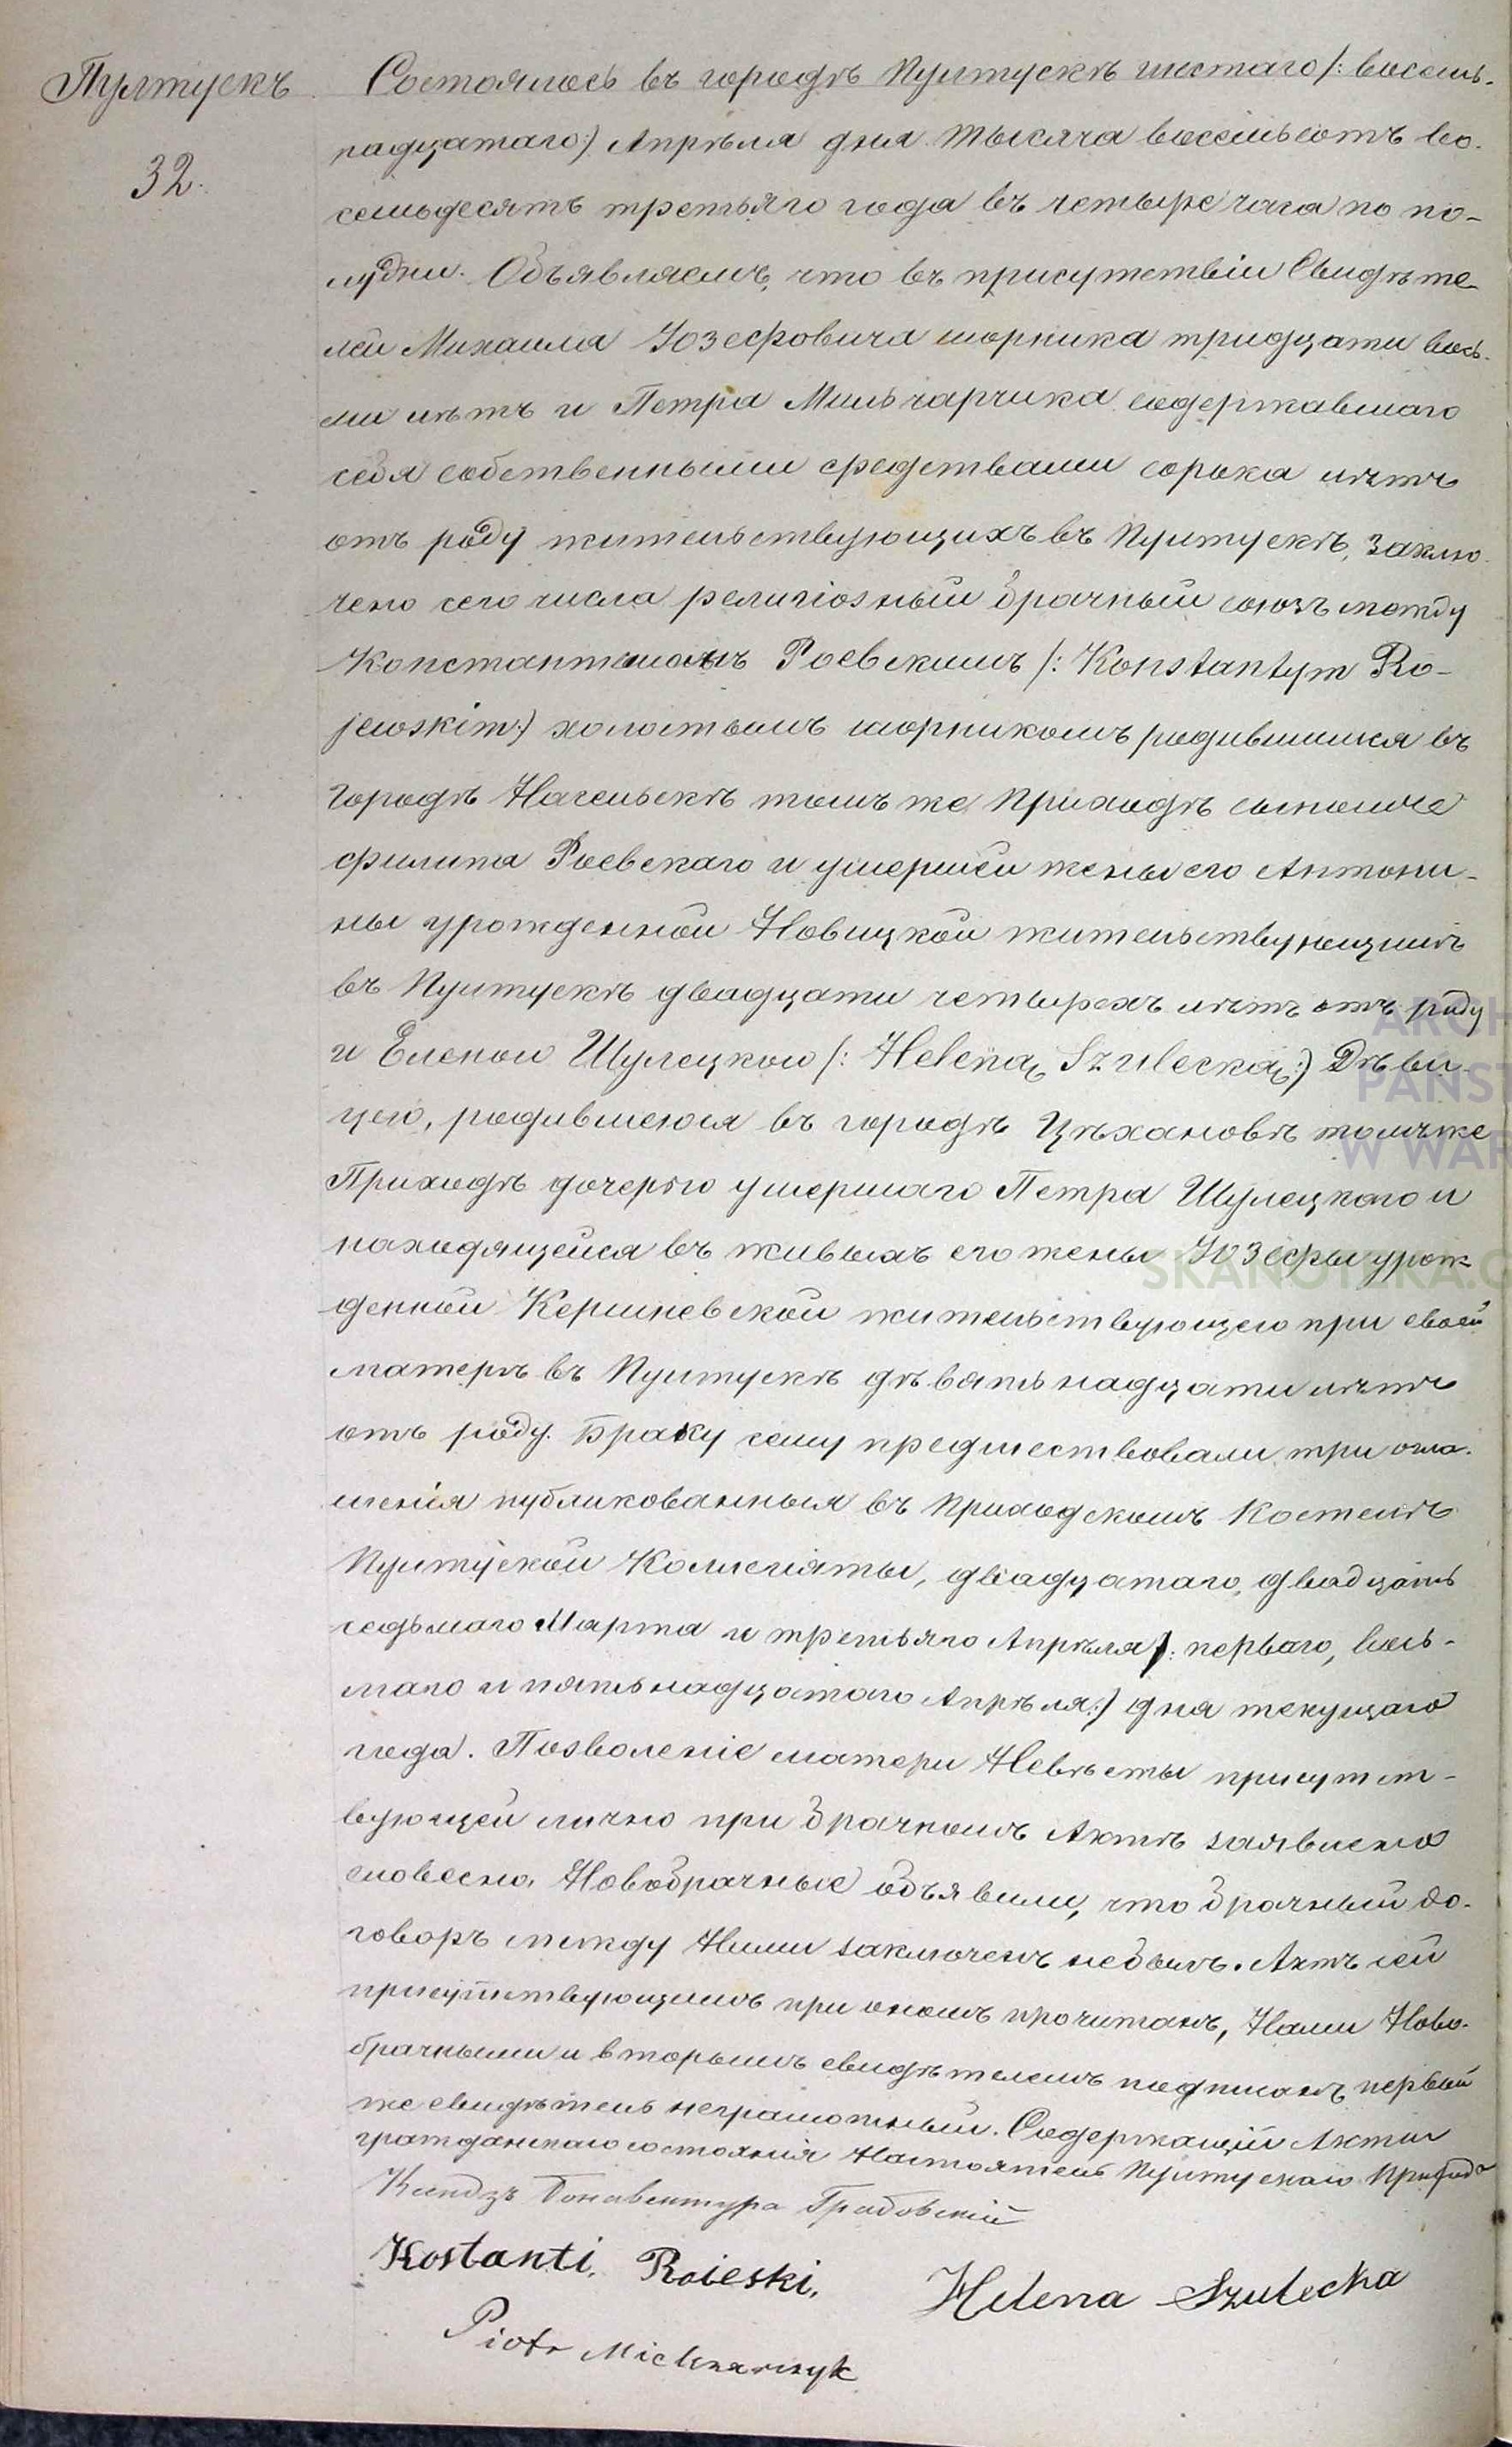 Пултускъ
32.
Состоялось въ городѣ Пултускѣ шестаго /: восемь-
надцатаго:/ Апрѣля дня тысяча восемьсотъ во-
семьдесятъ третьяго года въ четыре часа по по-
лудни. Объявляемъ, что въ присутствіи Свидѣте-
лей Михаила Юзефовича шорника тридцати вось-
ми лѣтъ и Петра Мильчарчика содержавшаго
себя собственными средствами сорока лѣтъ
отъ роду жительствующихъ въ Пултускѣ, заклю-
чено сего числа религіозный брачный союзъ между
Константиномъ Роевскимъ /: Konstantym Ro-
jewskim:/ холостымъ шорникомъ родившимся въ
городѣ Насельскѣ томъ же Приходѣ сыномъ
Филипа Роевскаго и умершей жены его Антони-
ны урожденной Новицкой жительствующимъ
въ Пултускѣ двадцати четырехъ лѣтъ отъ роду
и Еленой Шулецкой /: Heleną Szulecką:/ Дѣви-
цею, родившеюся въ городѣ Цѣхановѣ томъ же
Приходѣ дочерью умершаго Петра Шулецкаго и
находящейся въ живыхъ его жены Юзефы урож-
денной жительствующею при своей
матерѣ въ Пултускѣ дѣвятьнадцати лѣтъ
отъ роду. Браку сему предшествовали три огла-
шенія публикованныя въ Приходскомъ Костелѣ
Пултуской Коллегіяты, двадцатаго, двадцать
седьмаго Марта и третьяго Апрѣля /: перваго, вось-
маго и пятьнадцатаго Апрѣля:/ дня текущаго
года. Позволеніе матери Невѣсты присутст-
вующей лично при брачномъ Актѣ заявлено
словесно. Новобрачные объявили, что брачный до-
говоръ между Ними заключенъ небылъ. Актъ сей
присутствующимъ при ономъ прочитанъ, Нами Ново-
брачными и вторымъ свидѣтелемъ подписанъ первый
же свидѣтель неграмотный. Содержащій Акты
гражданскаго состоянія Настоятель Пултускаго Прихода
Ксендзъ Бонавентура Грабовскій
Kostanti. Roieski.
Helena Szulecka
Piotr
ARCH
PAŃST
W WAR